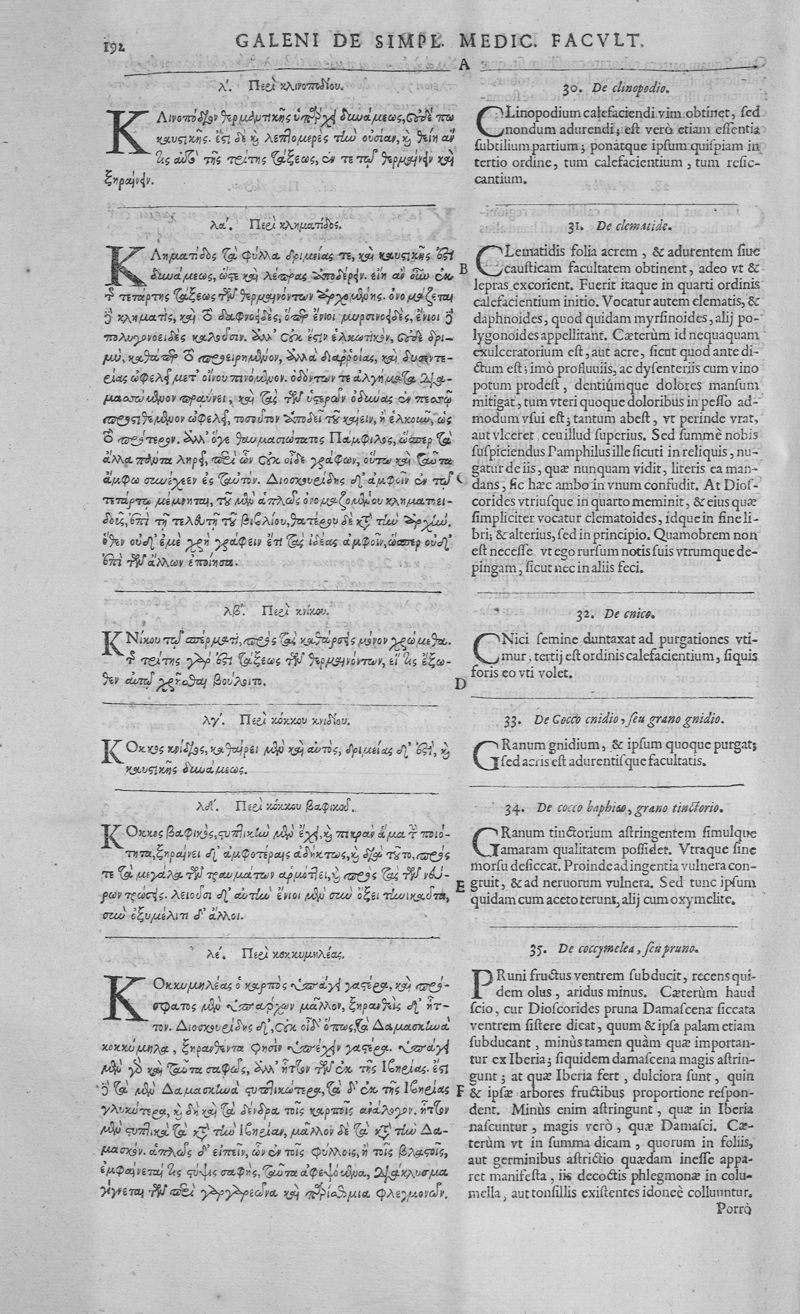 192
GALENI DE SIMPL. MEDIC. FACVLT.
λʹ. Περὶ κλινοποδίου.
ΚΛινοπόδιον θερμαντικῆς ὑπάρχει δυνάμεως, οὐδέπω
καυστικῆς. ἔστι δὲ καὶ λεπτομερὲς τὴν οὐσίαν, καὶ θείη ἄν
τις αὐτὸ τῆς τρίτης τάξεως, ἐν τε τῷ θερμαίνειν καὶ
ξηραίνειν.
λαʹ. Περὶ κληματίδος.
ΚΛηματίδος τὰ φύλλα δριμείας τε, καὶ καυστικῆς ἐστι
δυνάμεως, ὥστε καὶ λέπρας ἀποδέρειν. εἴη ἂν οὖν ἐκ
τῆς τετάρτης τάξεως τῶν θερμαινόντων ἀρχομένης. ὀνομάζεται
ἡ κληματὶς, καὶ τὸ δαφνοειδὲς, ὅπερ ἔνιοι μυρσινοειδὲς, ἔνιοι ἢ
πολυγονοειδὲς καλοῦσιν. ἀλλ' οὐκ ἔστιν ἑλκωτικὸν, οὐδὲ δρι-
μὺ, καθάπερ τὸ προειρημένον, ἀλλὰ διαῤῥοίας, καὶ δυσεντε-
ρίας ὠφελεῖ μετ' οἴνου πινόμενον. ὀδόντων τε ἀλγήματα δια-
μασσώμενον πραΰνει, καὶ τὰς τῶν ὑστερῶν ὀδύνας ἐν πεσσῷ
προστιθέμενον ὠφελεῖ, τοσοῦτον ἀποδεῖ τοῦ καίειν, ἢ ἑλκοῦν, ὡς
τὸ πρότερον. ἀλλ' ὅγε θαυμασιώτατος Πάμφιλος, ὥσπερ τὰ
ἄλλα πάντα ληρεῖ, περὶ ὧν οὐκ οἶδε γράφων, οὕτω καὶ ταῦτα
ἄμφω συνέχεεν ἐς ταὐτόν. Διοσκουρίδης δ' ἀμφοῖν ἐν τῷ
τετάρτῳ μέμνηται, τοῦ μὲν ἁπλῶς ὀνομαζομένου κληματοει-
δοῦς, ἐπὶ τῇ τελευτῇ τοῦ βιβλίου, θατέρου δὲ κατὰ τὴν ἀρχήν.
ὅθεν οὐδ' ἐμὲ χρὴ γράφειν ἔτι τὰς ἰδέας ἀμφοῖν, ὥσπερ οὐδ'
ἐπὶ τῶν ἄλλων ἐποίησα.
λβʹ. Περὶ κνίκου.
ΚΝίκου τῷ σπέρματι, πρὸς τὰς καθάρσεις μόνον χρώμεθα.
τῆς τρίτης γάρ ἐστι τάξεως τῶν θερμαινόντων, εἴ τις ἔξω-
θεν αὐτῷ χρῆσθαι βούλοιτο.
λγʹ. Περὶ κόκκου κνιδίου.
ΚΟκκος κνίδιος, καθαίρει μὲν καὶ αὐτὸς, δριμείας δ' ἐστὶ, καὶ
καυστικῆς δυνάμεως.
λδʹ. Περὶ κόκκου βαφικοῦ.
ΚΟκκος βαφικὸς, στυπτικὴν μὲν ἔχει, καὶ πικρὰν ἅμα τὴν ποιό-
τητα, ξηραίνει δ' ἀμφοτέραις ἀδήκτως, καὶ διὰ τοῦτο, πρός
τε τὰ μεγάλα τῶν τραυμάτων ἁρμόττει, καὶ πρὸς τὰς τῶν νεύ-
ρων τρώσεις. λειοῦσι δ' αὐτὴν ἔνιοι μὲν σὺν ὄξει τηνικαῦτα,
σὺν ὀξυμέλιτι δ' ἄλλοι.
λεʹ. Περὶ κοκκυμηλέας.
ΚΟκκυμηλέας ὁ καρπὸς ὑπάγει γαστέρα, καὶ πρό-
σφατος μὲν ὑπάρχων μᾶλλον, ξηρανθεὶς δ' ἧτ-
τον. Διοσκουρίδης δ', οὐκ οἶδ' ὅπως, τὰ Δαμασκηνὰ
κοκκύμηλα, ξηρανθέντα φησὶν ἐπέχειν γαστέρα. ὑπάγει
μὲν γὰρ καὶ ταῦτα σαφῶς, ἀλλ' ἧττον τῶν ἐκ τῆς Ἰβηρίας. ἔστι
ἢ τὰ μὲν Δαμασκηνὰ στυπτικώτερα, τὰ δ' ἐκ τῆς Ἰβηρίας
γλυκύτερα, καὶ δὴ καὶ τὰ δένδρα τοῖς καρποῖς ἀνάλογον. ἧττον
μὲν στυπτικὰ τὰ κατὰ τὴν Ἰβηρίαν, μᾶλλον δὲ τὰ κατὰ τὴν Δα-
μασκόν. ἁπλῶς δ' εἰπεῖν, ὧν ἐν τοῖς φύλλοις, ἢ τοῖς βλαστοῖς,
ἐμφαίνεταί τις στύψις σαφὴς, ταῦτα ἀφεψόμενα, διάκλυσμα
γίγνεται τῶν περὶ γαργαρεῶνα καὶ παρίσθμια φλεγμονῶν.
A
B
C
D
E
F
30. De clinopodio.
CLinopodium calefaciendi vim obtinet, sed
nondum adurendi, est verò etiam essentia
subtilium partium; ponatque ipsum quispiam in
tertio ordine, tum calefacientium, tum resic-
cantium.
31. De clematide.
CLematidis folia acrem, & adurentem siue
causticam facultatem obtinent, adeo vt &
lepras excorient. Fuerit itaque in quarti ordinis
calefacientium initio. Vocatur autem clematis, &
daphnoides, quod quidam myrsinoides, alij po-
lygonoides appellitant. Cæterùm id nequaquam
exulceratorium est, aut acre, sicut quod ante di-
ctum est; imò profluuiis, ac dysenteriis cum vino
potum prodest, dentiúmque dolores mansum
mitigat, tum vteri quoque doloribus in pesso ad-
modum vsui est; tantum abest, vt perinde vrat,
aut vlceret ceu illud superius. Sed summè nobis
suspiciendus Pamphilus ille sicuti in reliquis, nu-
gatur de iis, quæ nunquam vidit, literis ea man-
dans, sic hæc ambo in vnum confudit. At Dios-
corides vtriusque in quarto meminit, & eius quæ
simpliciter vocatur clematoides, idque in fine li-
bri; & alterius, sed in principio. Quamobrem non
est necesse vt ego rursum notis suis vtrumque de-
pingam, sicut nec in aliis feci.
32. De cnico.
CNici semine duntaxat ad purgationes vti-
mur, tertij est ordinis calefacientium, siquis
foris eo vti volet.
33. De Cocco cnidio, seu grano gnidio.
GRanum gnidium, & ipsum quoque purgat;
sed acris est adurentisque facultatis.
34. De cocco baphico, grano tinctorio.
GRanum tinctorium astringentem simulque
amaram qualitatem possidet. Vtraque sine
morsu desiccat. Proinde ad ingentia vulnera con-
gruit, & ad neruorum vulnera. Sed tunc ipsum
quidam cum aceto terunt, alij cum oxymelite.
35. De coccymelea, seu pruno.
PRuni fructus ventrem subducit, recens qui-
dem olus, aridus minus. Cæterùm haud
scio, cur Dioscorides pruna Damascena siccata
ventrem sistere dicat, quum & ipsa palam etiam
subducant, minùs tamen quàm quæ importan-
tur ex Iberia; siquidem damascena magis astrin-
gunt; at quæ Iberia fert, dulciora sunt, quin
& ipsæ arbores fructibus proportione respon-
dent. Minùs enim astringunt, quæ in Iberia
nascuntur, magis verò, quæ Damasci. Cæ-
terùm vt in summa dicam, quorum in foliis,
aut germinibus astrictio quædam inesse appa-
ret manifesta, iis decoctis phlegmonæ in colu-
mella, aut tonsillis existentes idoneè colluuntur.
Porrò